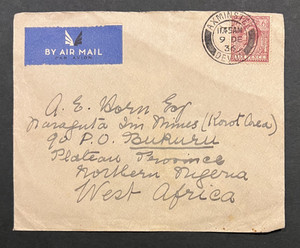 BY AIR MAIL
PAR AVION
AXMINSTER
11 45 AM
9 DE
36
DEVON
A. E. Dorn Esq
Naraguta Tin Mines (Korot Area)
90 P.O. BUKURU
Plateau Province
Northern Nigeria
West Africa